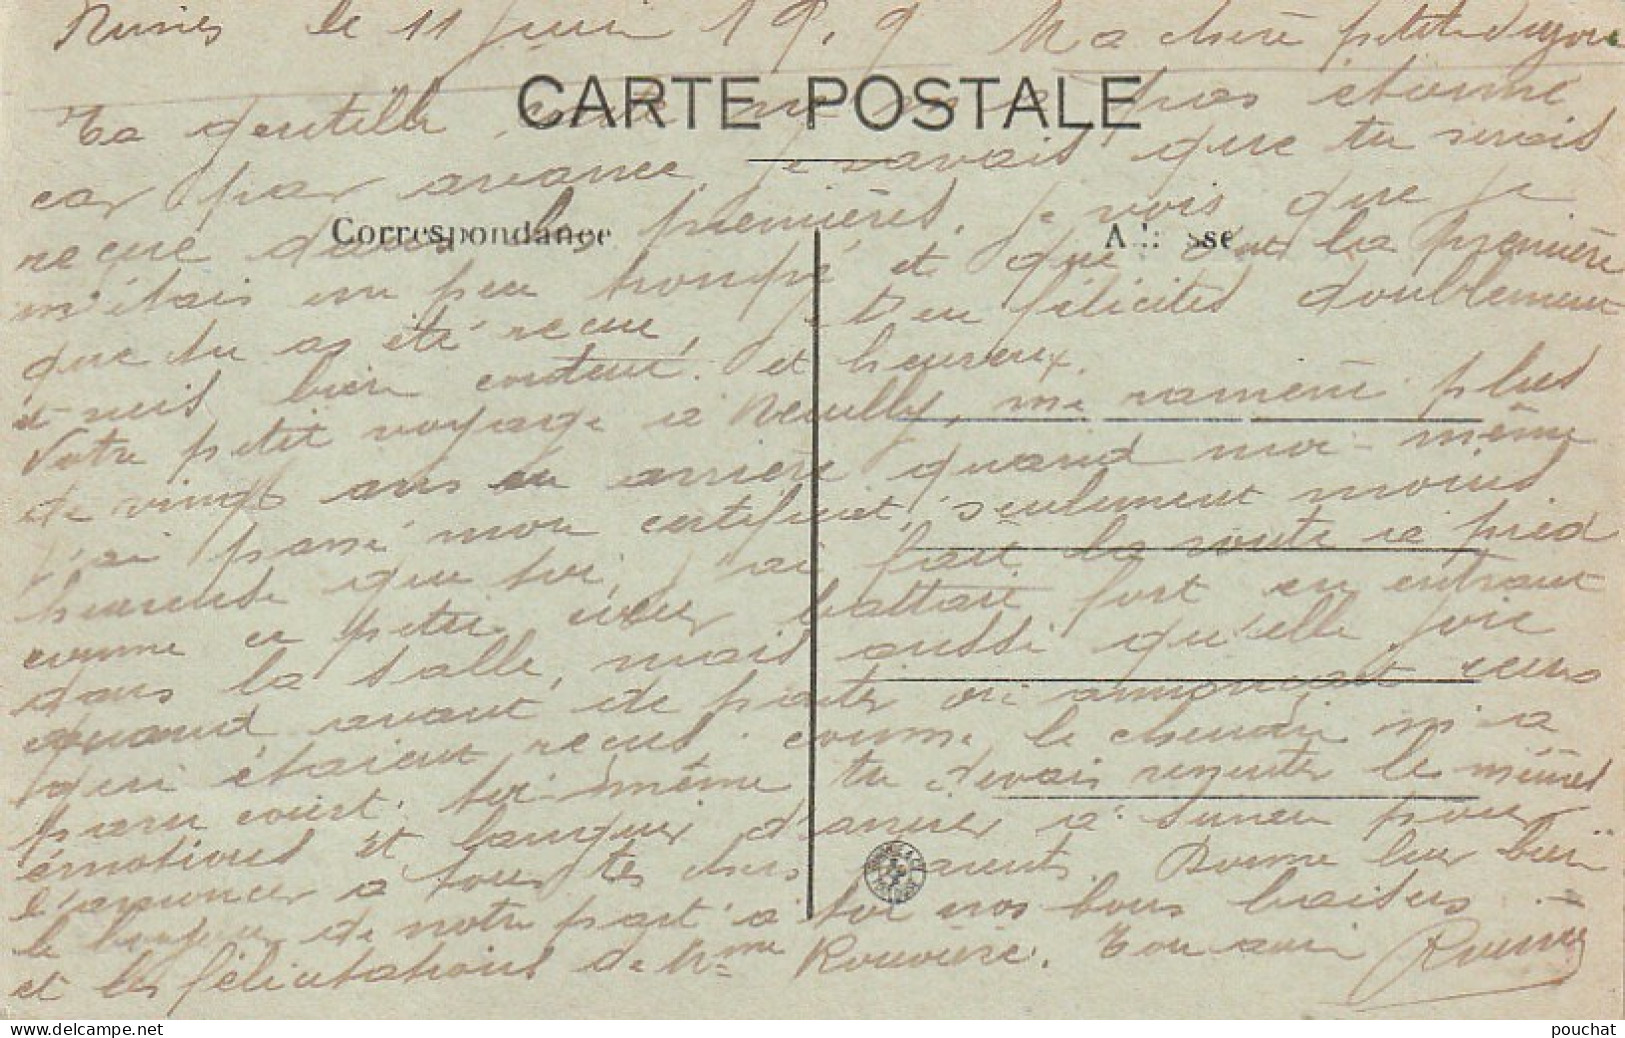 le 11 Juin 19.9 Ma chère petite
CARTE POSTALE
Ta gentille carte ne m'a pas étonné
car par avance, je savais que tu serais
reçue dans les premières. Je vois que je
Correspondance
m'étais un peu trompé et que c'est la première
que tu as été reçue, je t'en félicites doublement
et suis bien content et heureux.
Votre petit voyage à Neuilly, me ramène plus
de vingt ans en arrière quand moi-même
j'ai passé mon certificat, seulement moins
heureuse que toi, j'ai fait la route à pied
comme ce petit cœur battait fort en entrant
dans la salle, mais aussi qu'elle joie
quand avant de partir on annonçait ceux
qui étaient reçus, comme le chemin m'a
paru court. toi-même tu devais ressentir les mêmes
émotions et languir d'arriver à pour
l'annoncer à tous tes chers parents. Donne leur bien
le bonjour de notre part à toi nos bons baisers
et les félicitations de Mme Rouvière. Ton ami
pouchat
https://www.delcampe.net